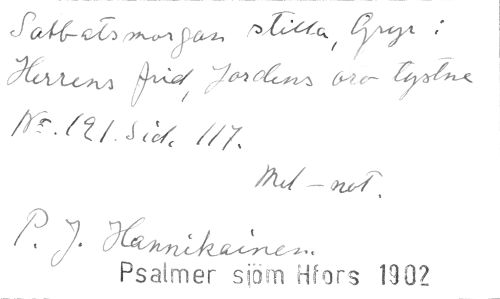 Sabbatsmorgan stilla, Gryr i
Herrens frid, Jordens oro tystne
No. 121. Sid. 117.
Mel-not.
P. J. Hannikainen.
Psalmer sjöm Hfors 1902